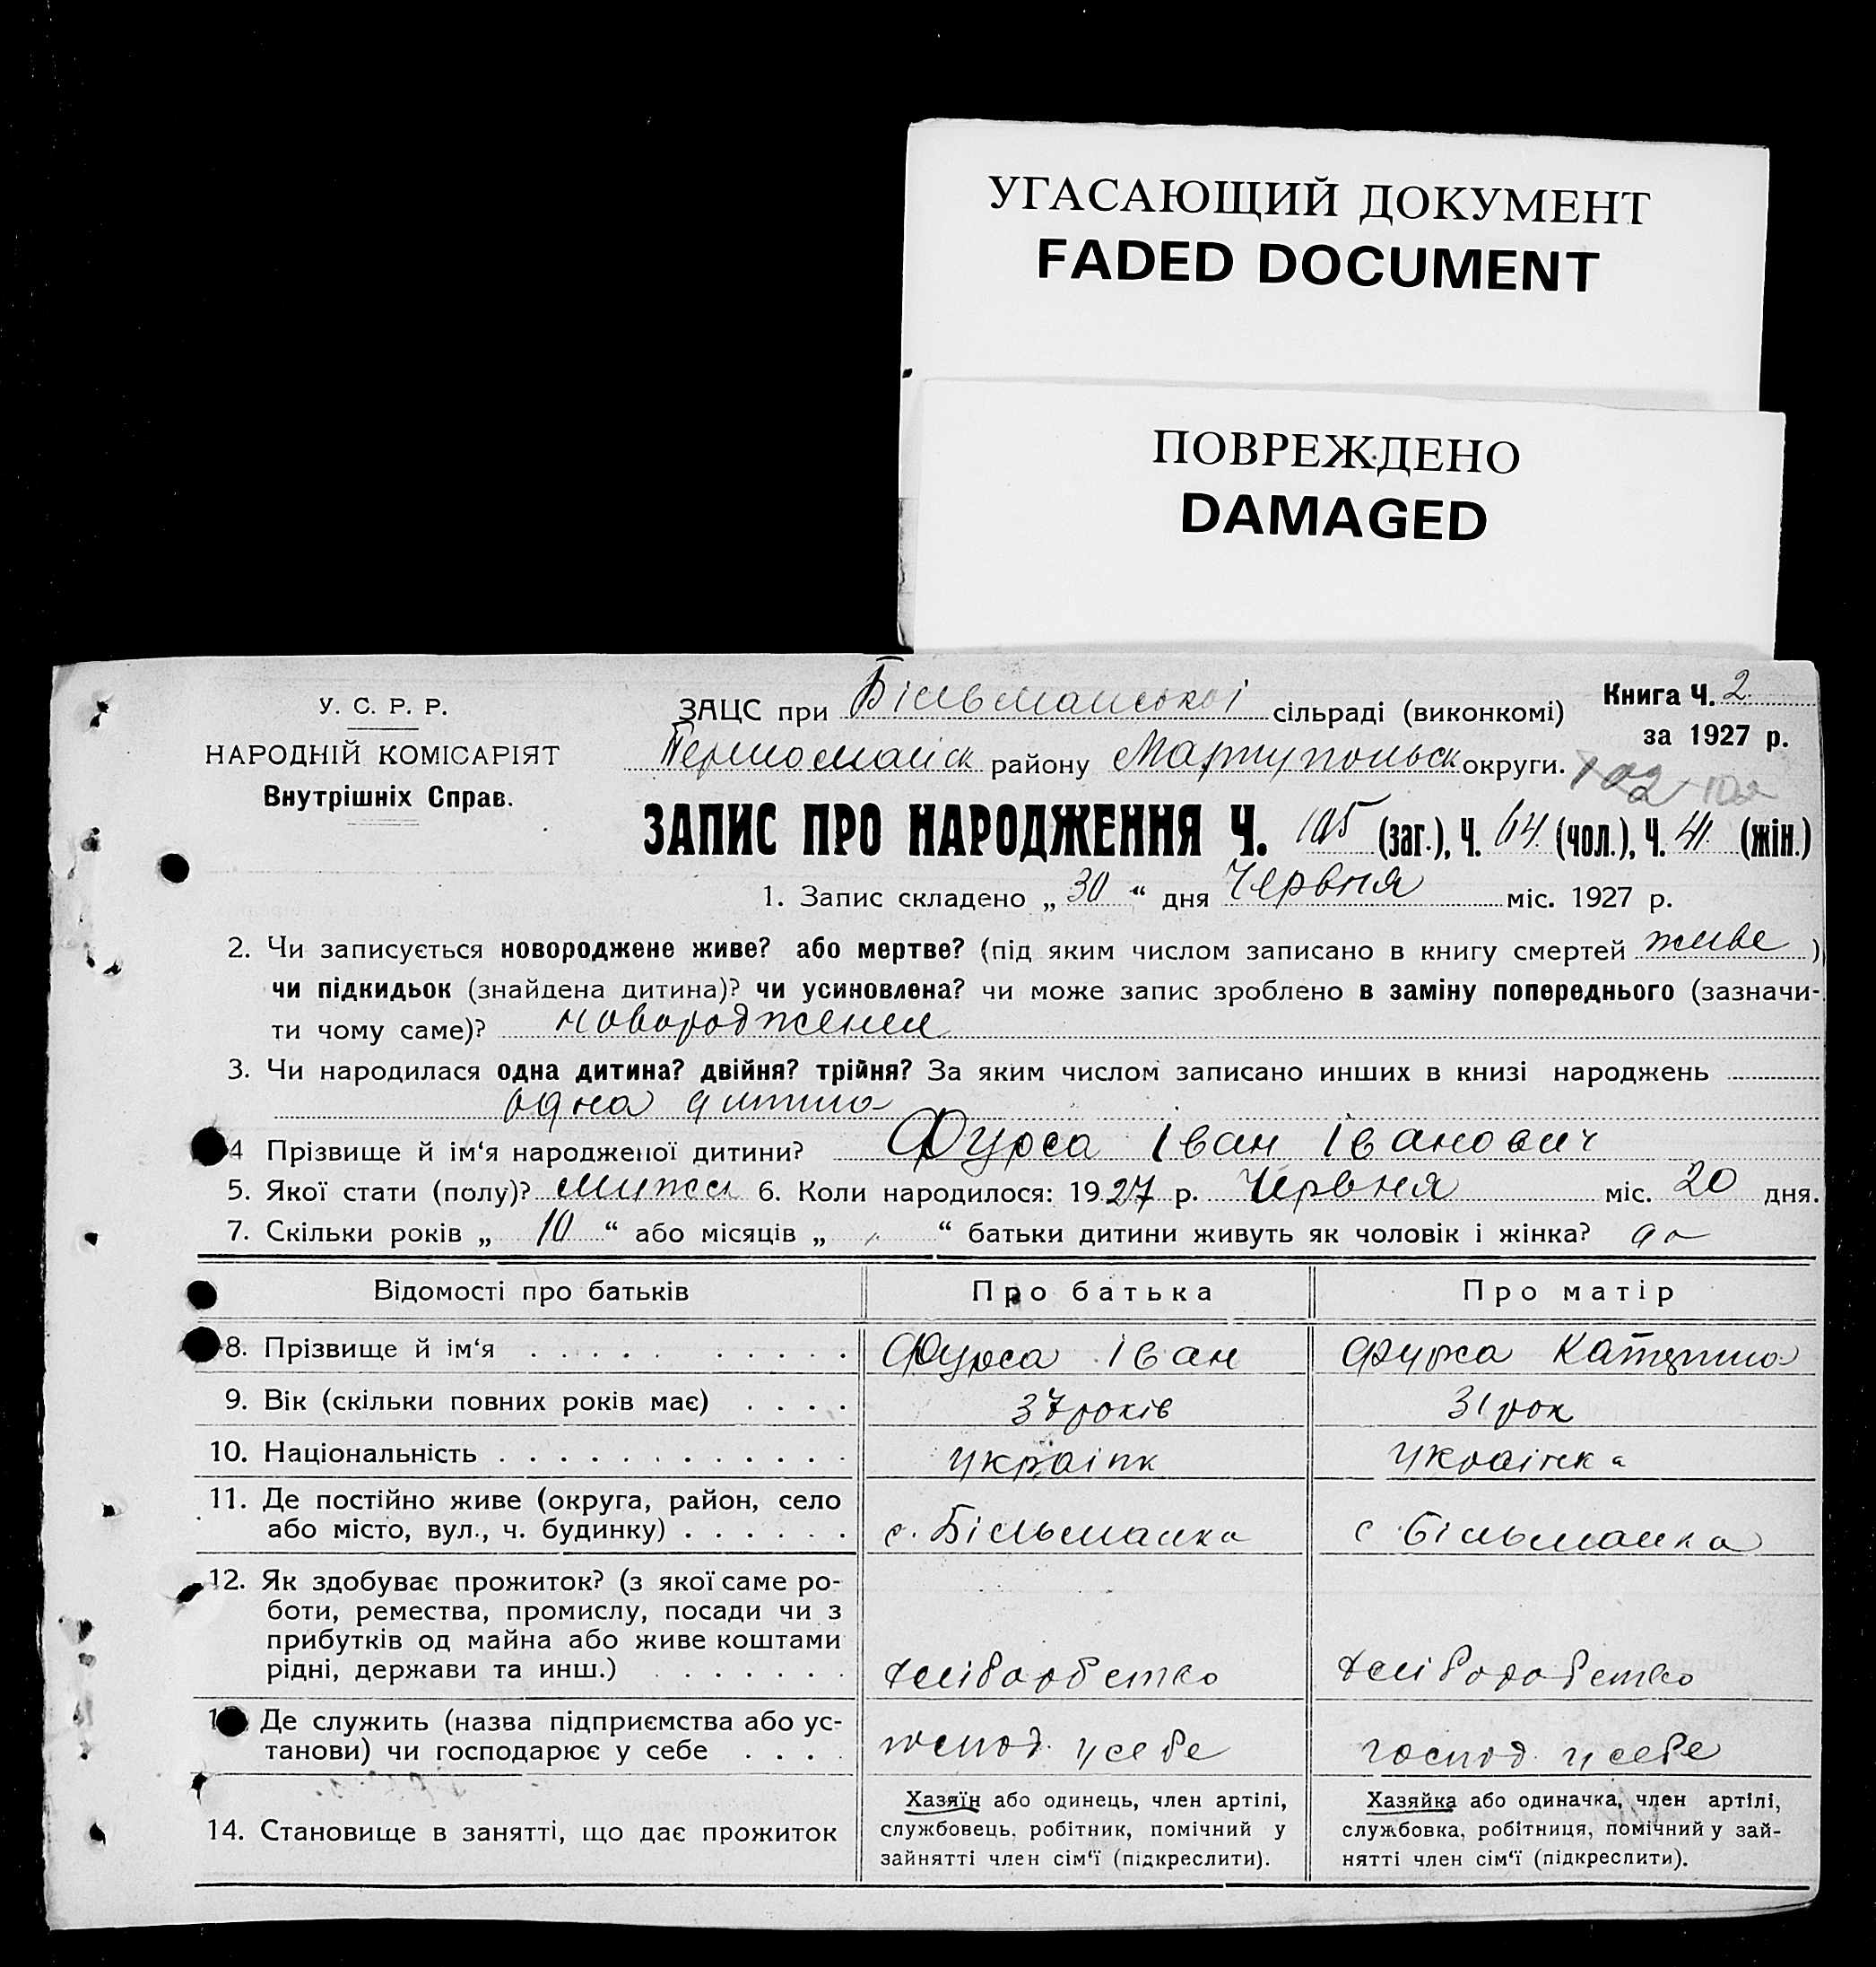 УГАСАЮЩИЙ ДОКУМЕНТ
FADED DOCUMENT
ПОВРЕЖДЕНО
DAMAGED
У. С. Р. Р.
НАРОДНІЙ КОМІСАРІЯТ
Внутрішніх Справ.
ЗАЦС при Більманської сільраді (виконкомі)
Книга Ч. 2
за 1927 р.
Першомайск району Маріупольск округи.
102
ЗАПИС ПРО НАРОДЖЕННЯ Ч. 105 (заг.), Ч. 64 (чол.), Ч. 41 (жін.)
1. Запис складено „ 30 “ дня Червня міс. 1927 р.
2. Чи записується новороджене живе? або мертве? (під яким числом записано в книгу смертей живе )
чи підкидьок (знайдена дитина)? чи усиновлена? чи може запис зроблено в заміну попереднього (зазначи-
ти чому саме)? новороджений
3. Чи народилася одна дитина? двійня? трійня? За яким числом записано инших в книзі народжень
одна дитина
4 Прізвище й ім‘я народженої дитини? Фурса Іван Іванович
5. Якої стати (полу)? мужск 6. Коли народилося: 1927 р. Червня міс. 20 дня.
7. Скільки років „ 10 “ або місяців „ “ батьки дитини живуть як чоловік і жінка?
Відомості про батьків Про батька Про матір
8. Прізвище й ім‘я Фурса Іван Фурса Катерина
9. Вік (скільки повних років має) 37 років 31 рок
10. Національність українк українка
11. Де постійно живе (округа, район, село
або місто, вул., ч. будинку) с. Більманка с Більманка
12. Як здобуває прожиток? (з якої саме ро-
боти, ремества, промислу, посади чи з
прибутків од майна або живе коштами
рідні, держави та инш.)
Де служить (назва підприємства або ус-
танови) чи господарює у себе господ. у себе господ. у себе
14. Становище в занятті, що дає прожиток
Хазяїн або одинець, член артілі,
службовець, робітник, помічний у
зайнятті член сім‘ї (підкреслити).
Хазяйка або одиначка, член артілі,
службовка, робітниця, помічний у зай-
нятті член сім‘ї (підкреслити).